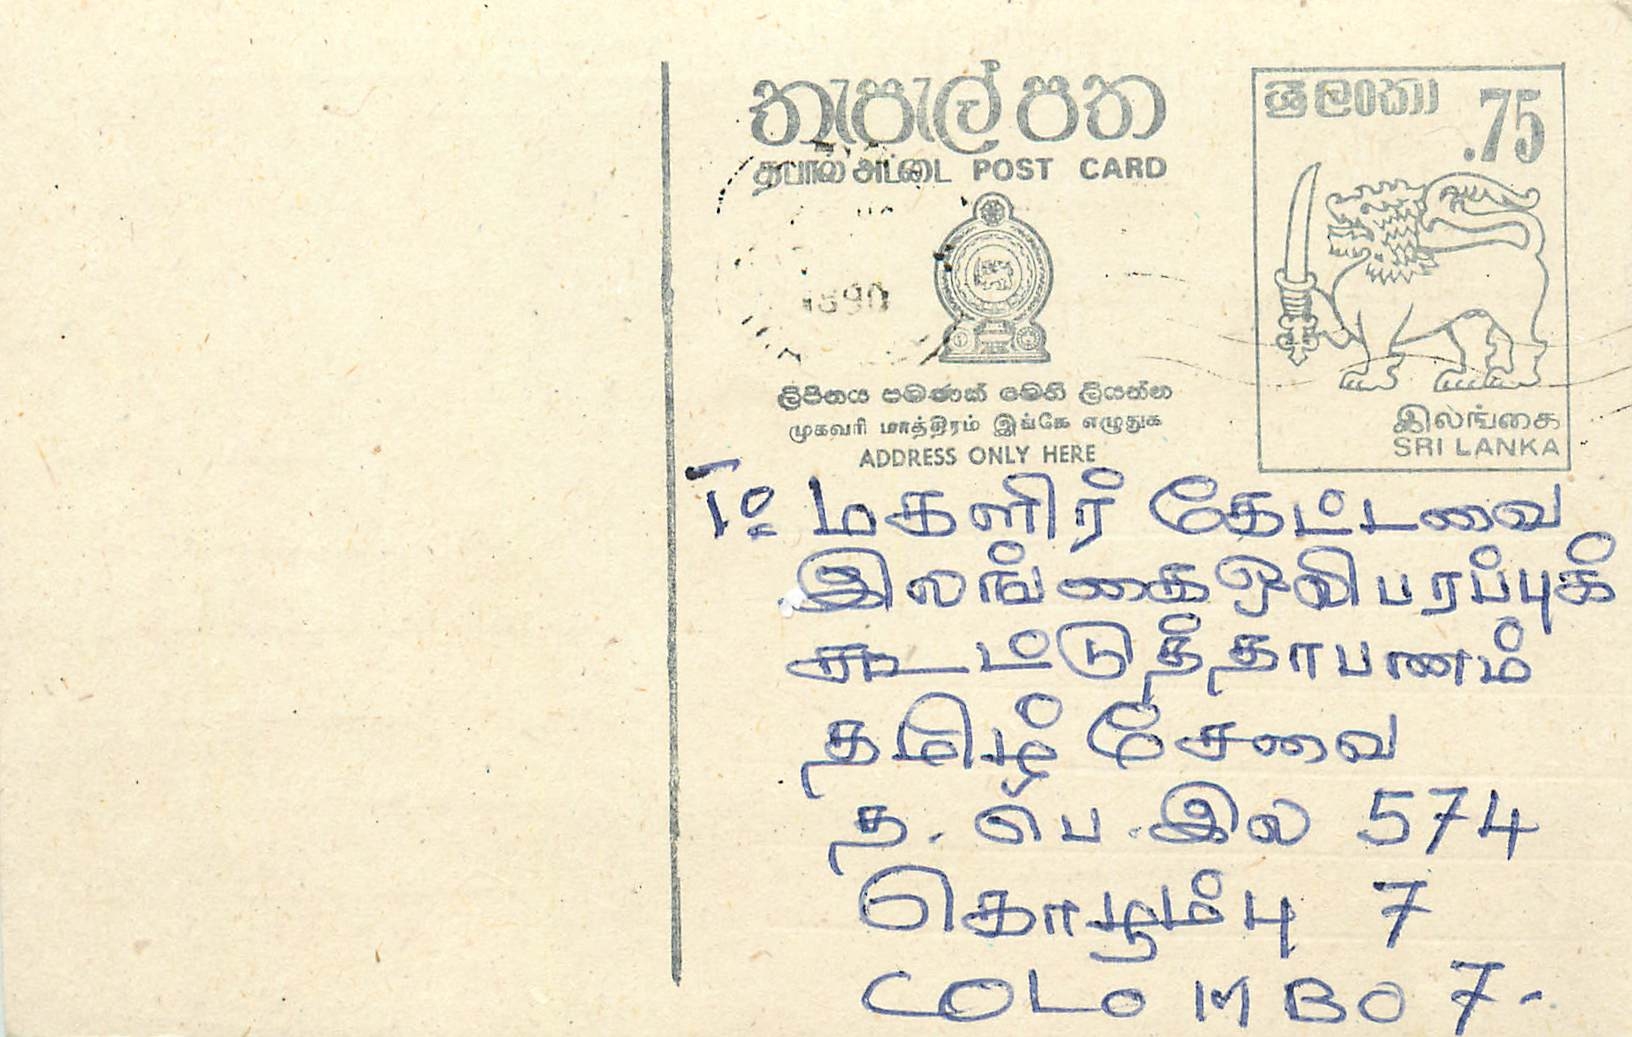 තැපැල් පත
தபால் அட்டை POST CARD
ශ්‍රී ලංකා .75
1990
ලිපිනය පමණක් මෙහි ලියන්න
முகவரி மாத்திரம் இங்கே எழுதுக
ADDRESS ONLY HERE
இலங்கை
SRI LANKA
To: மகளிர் கேட்டவை
இலங்கை ஒலிபரப்புக்
கூட்டுத்தாபனம்
தமிழ் சேவை
த. பெ. இல 574
கொழும்பு 7
COLOMBO 7.